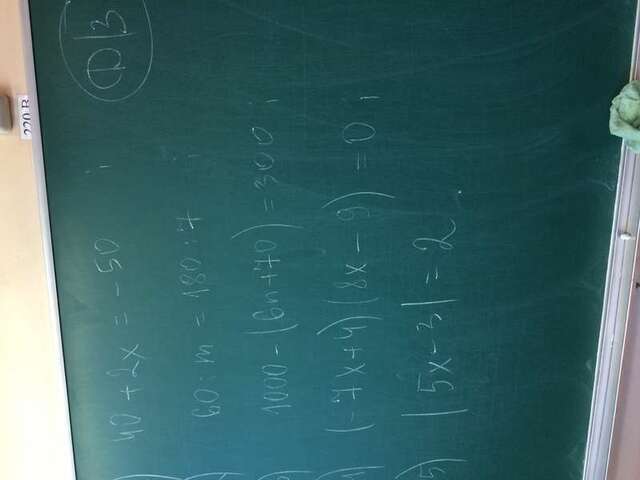 220 В
Д/З
40 + 2x = -50 ;
60 : m = 180 : 7 ;
1000 - (6n + 70) = 300 ;
(-7x + 4)(8x - 9) = 0 ;
5) |5x - 3| = 2 .